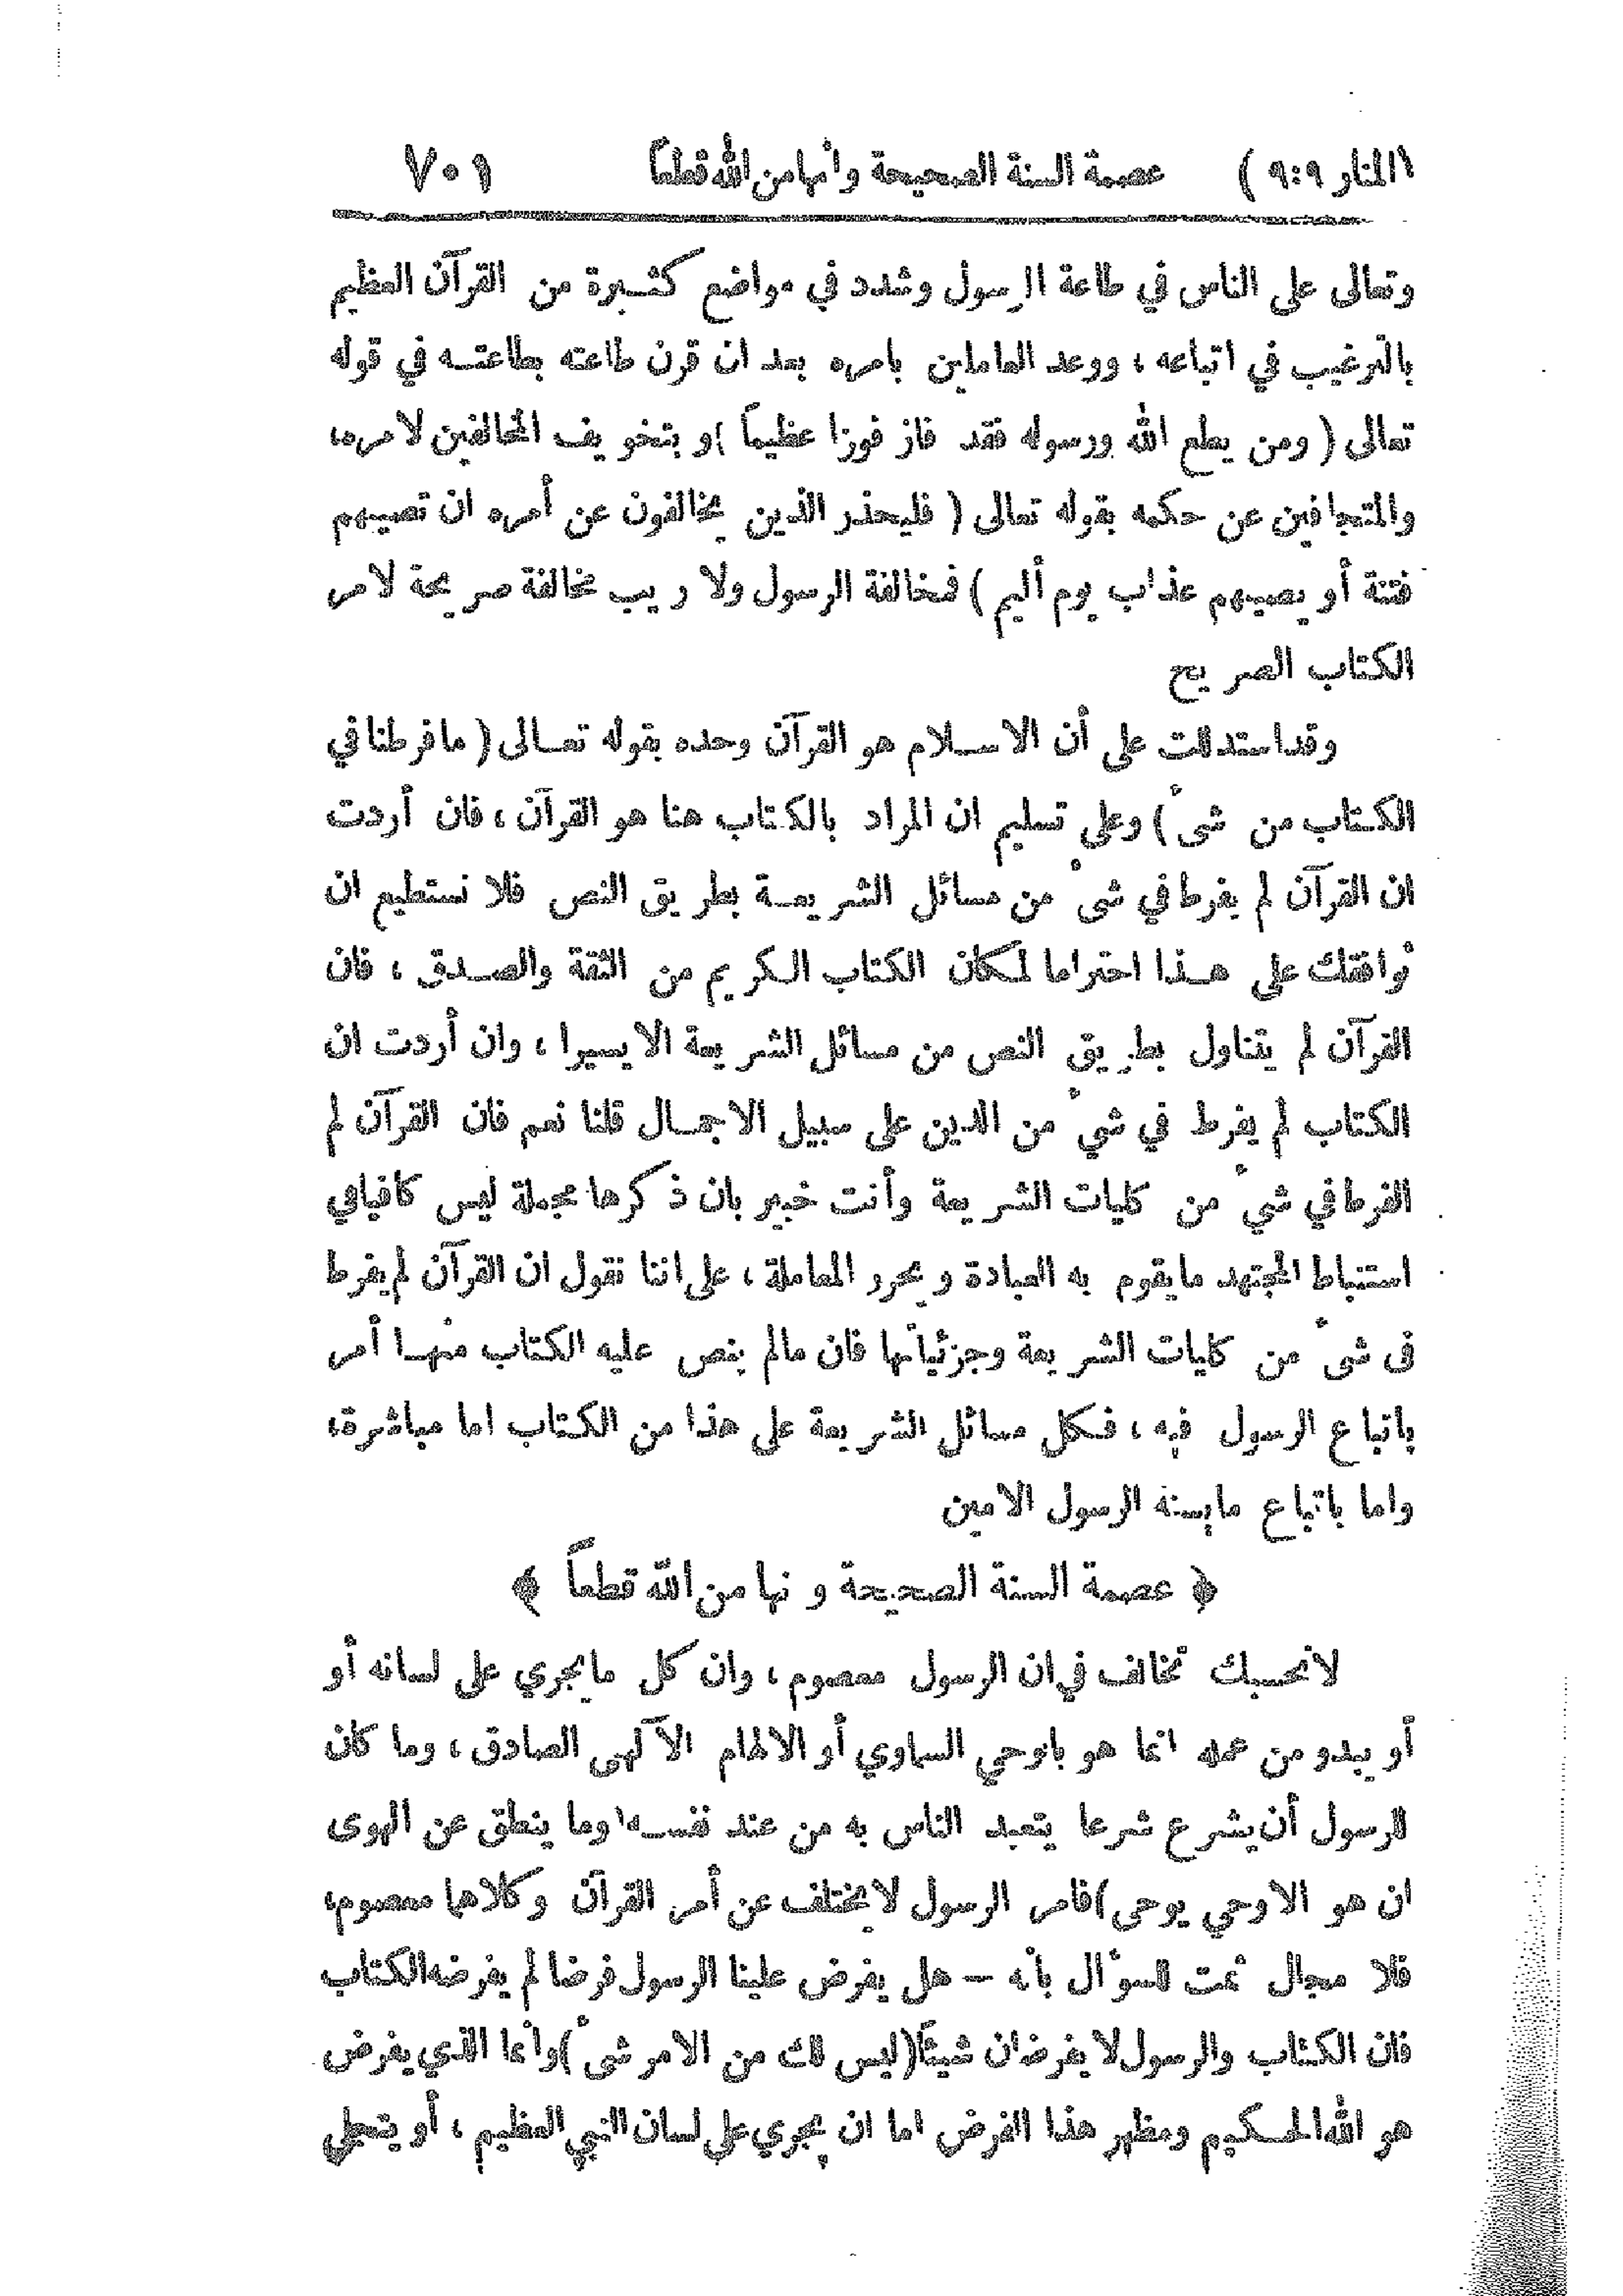 (المنار ٩:٩) عصمة السنة الصحيحة وانها من الله قطعاً ٧٠١
وتعالى على الناس في طاعة الرسول وشدد في مواضع كثيرة من القرآن العظيم
بالترغيب في اتباعه ، ووعد العاملين بامره بعد ان قرن طاعته بطاعته في قوله
تعالى ( ومن يطع الله ورسوله فقد فاز فوزا عظيماً ) و بتخويف المخالفين لامره،
والمتجافين عن حكمه بقوله تعالى ( فليحذر الذين يخالفون عن أمره ان تصيبهم
فتنة أو يصيبهم عذاب يوم أليم ) فمخالفة الرسول ولا ريب مخالفة صريحة لامر
الكتاب الصريح
وقد استدللت على أن الاسلام هو القرآن وحده بقوله تعالى ( ما فرطنا في
الكتاب من شئ ) وعلى تسليم ان المراد بالكتاب هنا هو القرآن ، فان أردت
ان القرآن لم يفرط في شئ من مسائل الشريعة بطريق النص فلا نستطيع ان
نوافقك على هذا احتراما لمكان الكتاب الكريم من الثقة والصدق ، فان
القرآن لم يتناول بطريق النص من مسائل الشريعة الا يسيرا ، وان أردت ان
الكتاب لم يفرط في شيء من الدين على سبيل الاجمال قلنا نعم فان القرآن لم
الفرط في شيء من كليات الشريعة وأنت خبير بان ذكرها مجملة ليس كافيا في
استنباط المجتهد ما يقوم به العبادة و يحرر المعاملة ، على اننا نقول ان القرآن لم يفرط
فى شئ من كليات الشريعة وجزئياتها فان مالم ينص عليه الكتاب منها أمر
باتباع الرسول فيه ، فكل مسائل الشريعة على هذا من الكتاب اما مباشرة،
واما باتباع ما يسنه الرسول الامين
﴿ عصمة السنة الصحيحة و نها من الله قطعاً ﴾
لا نحسبك تخالف في ان الرسول معصوم ، وان كل ما يجري على لسانه أو
أو يبدو من عمله انما هو بالوحي السماوي أو الالهام الآلهى الصادق ، وما كان
للرسول أن يشرع شرعا يتعبد الناس به من عند نفسه (وما ينطق عن الهوى
ان هو الا وحي يوحى) فامر الرسول لا يختلف عن أمر القرآن وكلاهما معصوم،
فلا مجال ثمت للسؤال بانه – هل يفرض علينا الرسول فرضا لم يفرضه الكتاب
فان الكتاب والرسول لا يفرضان شيئاً (ليس لك من الامر شئ) وانما الذي يفرض
هو الله الحكيم ومظهر هذا الفرض اما ان يجري على لسان النبي العظيم ، أو يتجلى